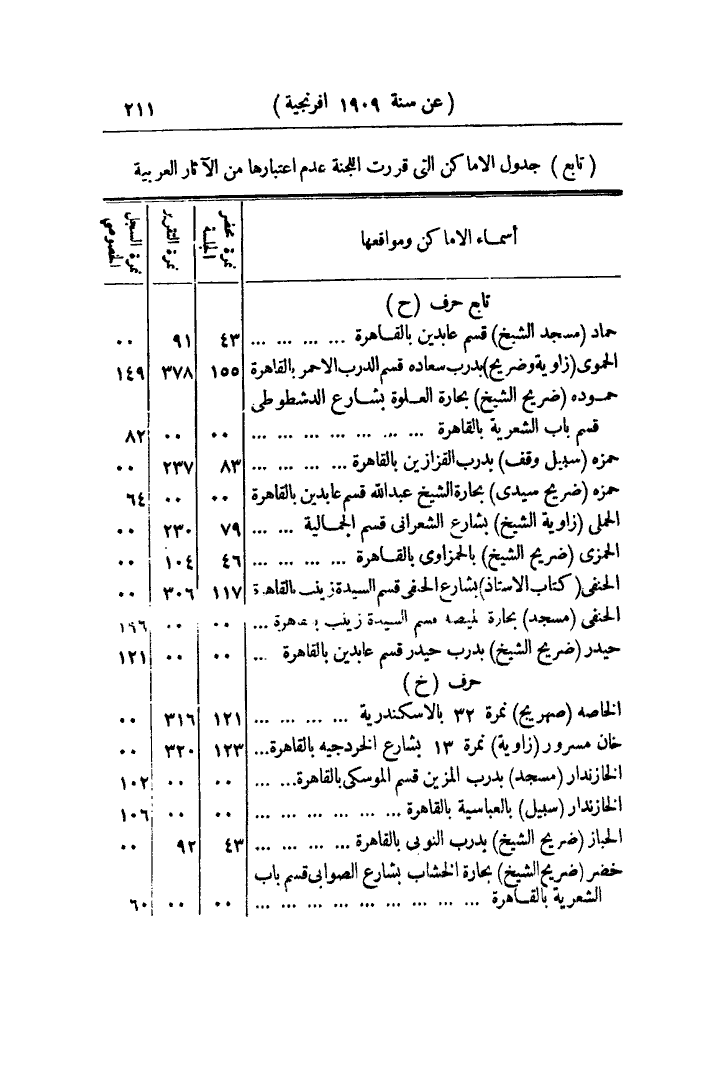 (عن سنة ١٩٠٩ افرنجية) ٢١١
(تابع) جدول الاماكن التى قررت اللجنة عدم اعتبارها من الآثار العربية
أسماء الاماكن ومواقعها | نمرة محضر الجلسة | نمرة التقرير | نمرة السجل الخصوصى
تابع حرف (ح)
حماد (مسجد الشيخ) قسم عابدين بالقاهرة ... ... ... ... ٤٣ ٩١ ٠٠
الحموى (زاوية وضريح) بدرب سعاده قسم الدرب الاحمر بالقاهرة ١٥٥ ٣٧٨ ١٤٩
حموده (ضريح الشيخ) بحارة العلوة بشارع الدشطوطى
قسم باب الشعرية بالقاهرة ... ... ... ... ... ... ... ٠٠ ٠٠ ٨٢
حمزه (سبيل وقف) بدرب القزازين بالقاهرة ... ... ... ... ٨٣ ٢٣٧ ٠٠
حمزه (ضريح سيدى) بحارة الشيخ عبدالله قسم عابدين بالقاهرة ٠٠ ٠٠ ٦٤
الحملى (زاوية الشيخ) بشارع الشعرانى قسم الجمالية ... ... ٧٩ ٢٣٠ ٠٠
الحمزى (ضريح الشيخ) بالحمزاوى بالقاهرة ... ... ... ... ٤٦ ١٠٤ ٠٠
الحنفى (كتاب الاستاذ) بشارع الحنفى قسم السيدة زينب بالقاهرة ١١٧ ٣٠٦ ٠٠
الحنفى (مسجد) بحارة قسم السيدة زينب بالقاهرة ... ٠٠ ٠٠ ١٩٦
حيدر (ضريح الشيخ) بدرب حيدر قسم عابدين بالقاهرة ... ٠٠ ٠٠ ١٢١
حرف (خ)
الخاصه (صهريج) نمرة ٣٢ بالاسكندرية ... ... ... ... ١٢١ ٣١٦ ٠٠
خان مسرور (زاوية) نمرة ١٣ بشارع الخردجيه بالقاهرة... ١٢٣ ٣٢٠ ٠٠
الخازندار (مسجد) بدرب المزين قسم الموسكى بالقاهرة... ... ٠٠ ٠٠ ١٠٢
الخازندار (سبيل) بالعباسية بالقاهرة ... ... ... ... ... ... ٠٠ ٠٠ ١٠٦
الخباز (ضريح الشيخ) بدرب النوبى بالقاهرة ... ... ... ... ٤٣ ٩٢ ٠٠
خضر (ضريح الشيخ) بحارة الخشاب بشارع الصوابى قسم باب
الشعرية بالقاهرة ... ... ... ... ... ... ... ... ... ٠٠ ٠٠ ٦٠